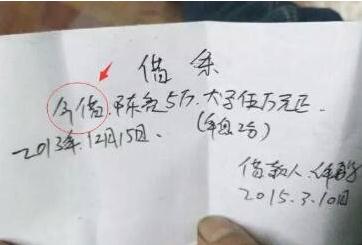 借条
今借 陈 5万.大写伍万元正.
2013年.12月15日. (年息2分)
借款人
2015.3.10日